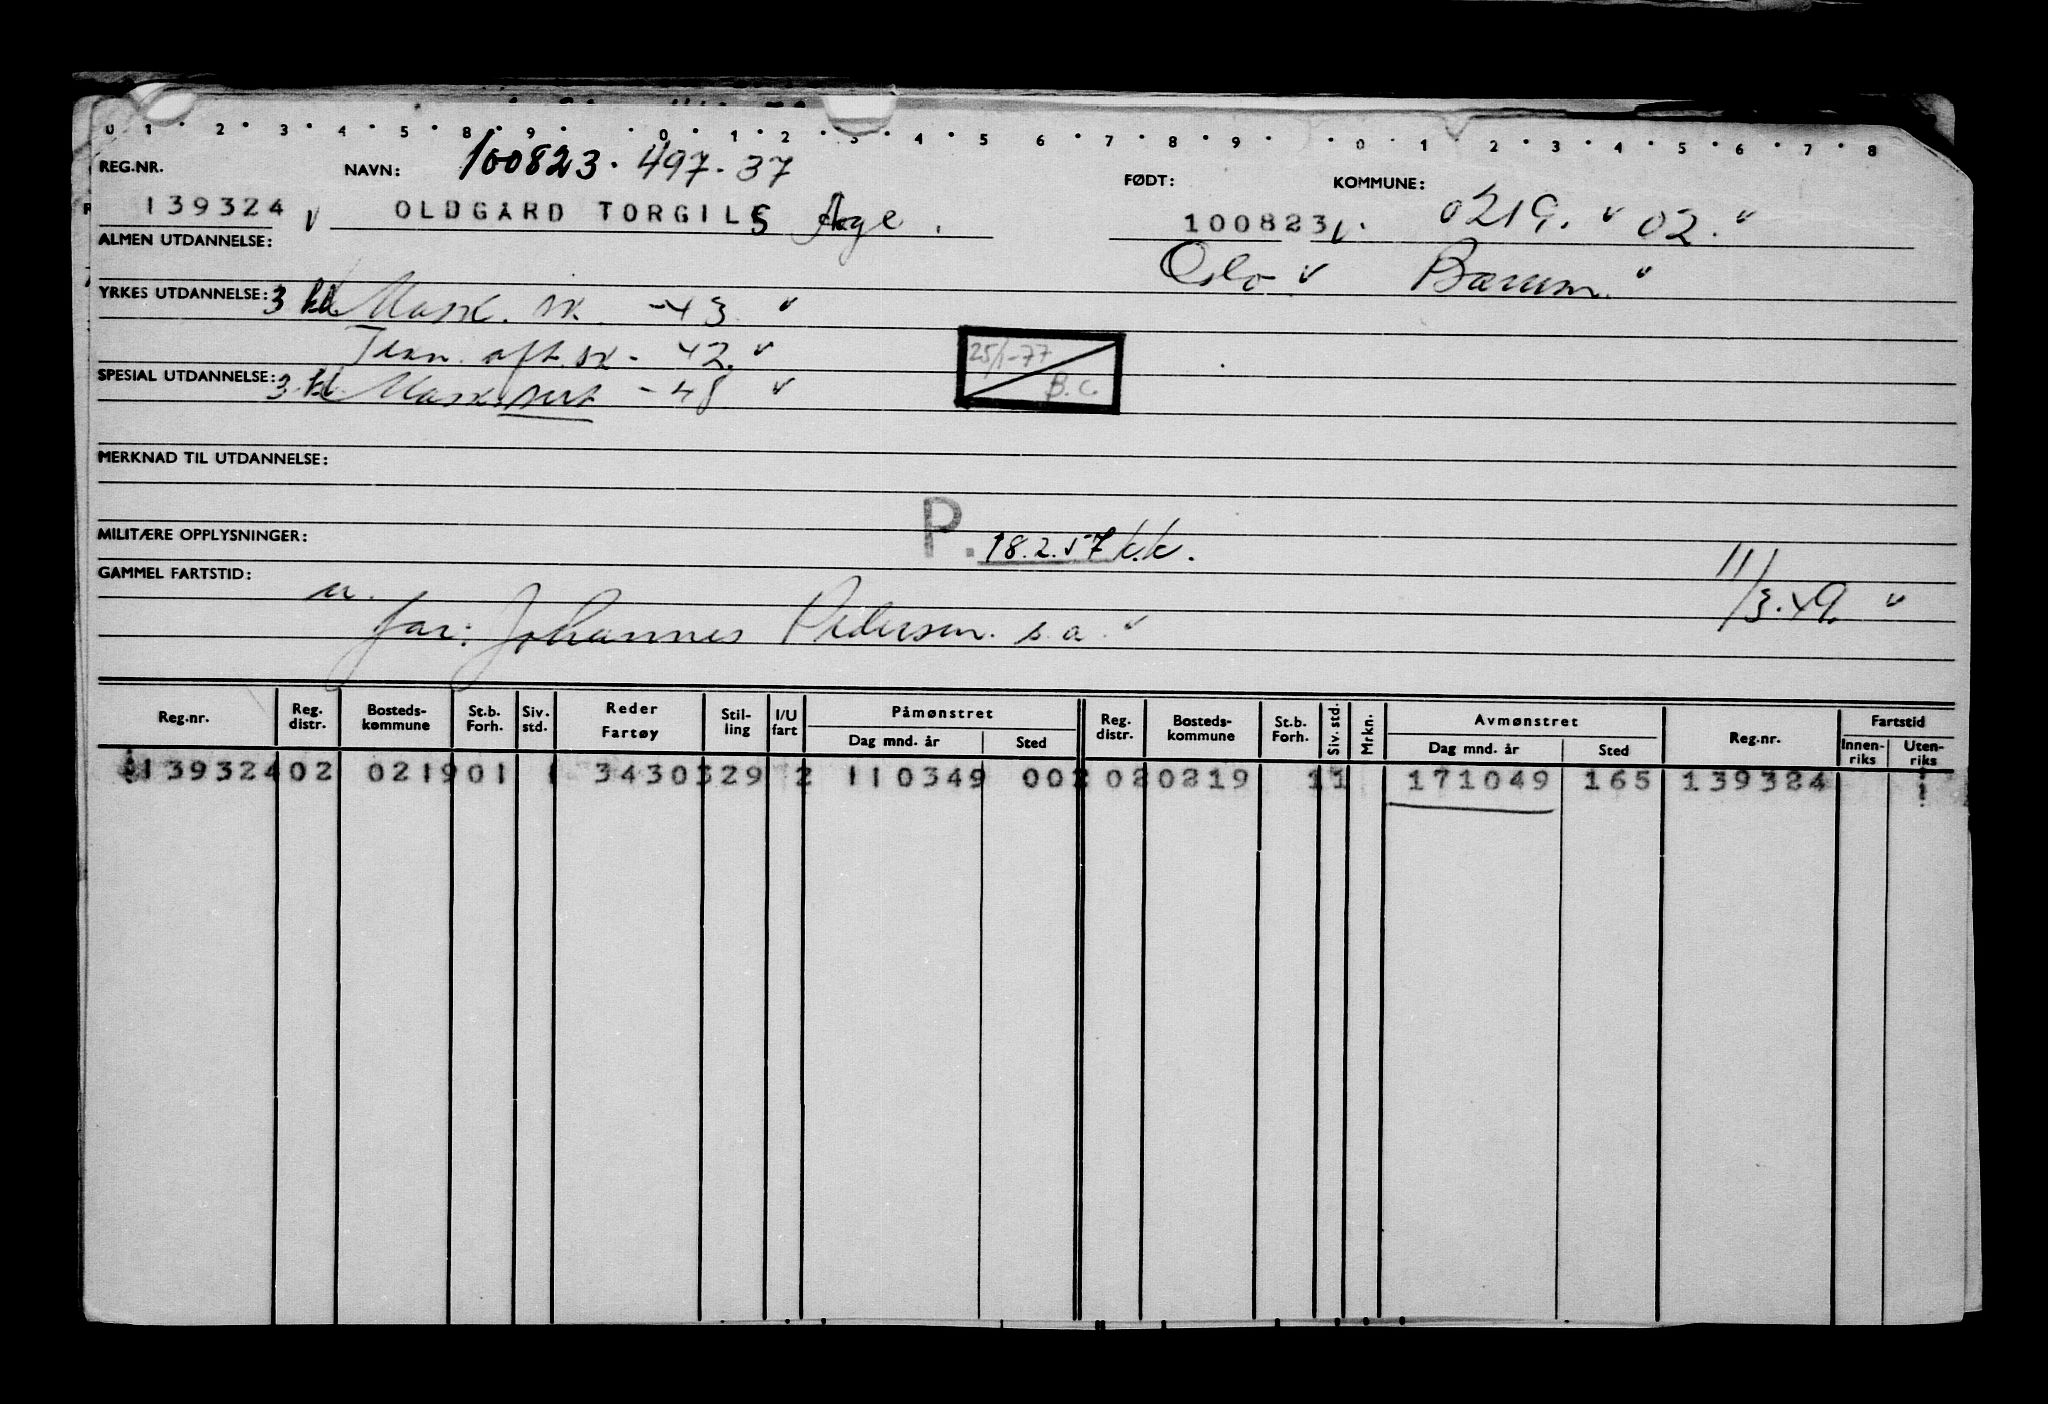 0 1 2 3 4 5 8 9 0 1 2 3 4 5 6 7 8 9 0 1 2 3 4 5 6 7 8
REG.NR. NAVN: 100823. 497. 37 FØDT: KOMMUNE:
139324 v OLDGARD TORGILS Åge. 100823 v. 0219. v 02. v
ALMEN UTDANNELSE: Oslo v Bærum. v
YRKES UTDANNELSE: 3 kl Mask. sk. -43 v
Tekn. aft. sk - 42. v
25/1-77
B.C.
SPESIAL UTDANNELSE: 3 kl Mask. sert -48 v
MERKNAD TIL UTDANNELSE:
MILITÆRE OPPLYSNINGER: P. 18.2.57 k.k.
GAMMEL FARTSTID: u. 11/3.49. v
far: Johannes Pedersen. s.a. v
Reg.nr. Reg. distr. Bosteds-kommune St.b. Forh. Siv. std. Reder Fartøy Stil-ling I/U fart Påmønstret Dag mnd. år Sted Reg. distr. Bosteds-kommune St.b. Forh. Siv. std. Mrkn. Avmønstret Dag mnd. år Sted Reg.nr. Fartstid Innen-riks Uten-riks
139324 02 0219 01 1 3430329 2 110349 002 02 0219 11 171049 165 139324